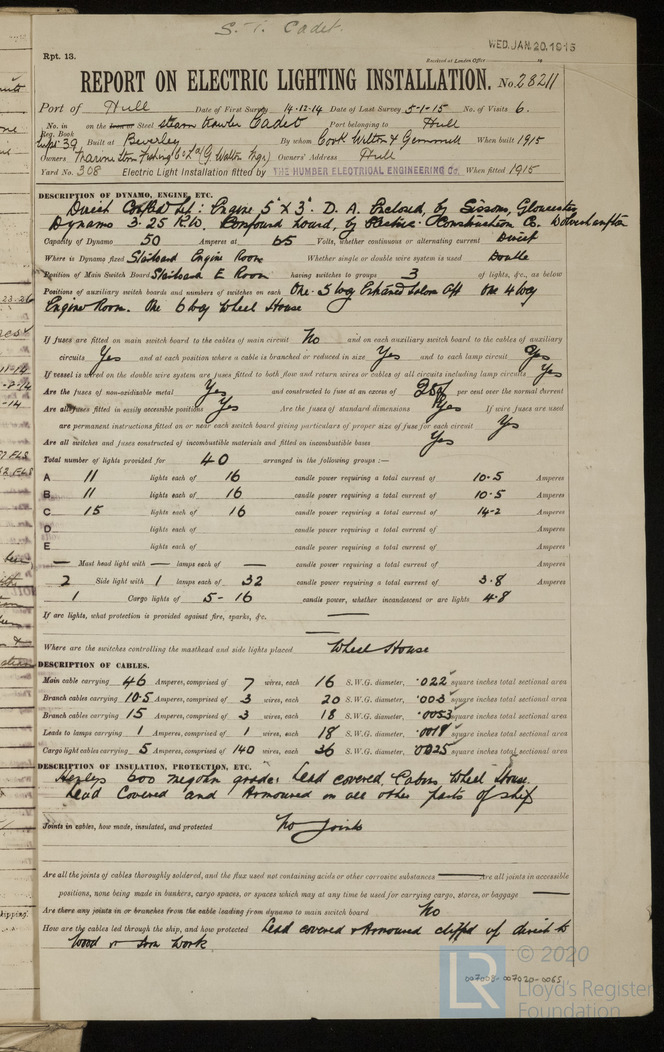 S.T. Cadet.
WED. JAN. 20. 1915
Rpt. 13.
Received at London Office
REPORT ON ELECTRIC LIGHTING INSTALLATION. No. 28211
Port of Hull Date of First Survey 14-12-14 Date of Last Survey 5-1-15 No. of Visits 6.
No. in on the Iron or Steel steam trawler Cadet Port belonging to Hull
Reg. Book
Supt 39 Built at Beverley By whom Cook Welton & Gemmell When built 1915
Owners Steam Fishing Co Ld (G Walton Mgr) Owners' Address Hull
Yard No. 308 Electric Light Installation fitted by THE HUMBER ELECTRICAL ENGINEERING Co. When fitted 1915
DESCRIPTION OF DYNAMO, ENGINE, ETC.
Direct Coupled Set: Engine 5" x 3". D. A. Enclosed, by Sissons, Gloucester
Dynamo 3.25 K.W. Compound wound, by Electric Construction Co. Wolverhampton
Capacity of Dynamo 50 Amperes at 65 Volts, whether continuous or alternating current Direct
Where is Dynamo fixed Starboard Engine Room Whether single or double wire system is used Double
Position of Main Switch Board Starboard E Room having switches to groups 3 of lights, &c., as below
Positions of auxiliary switch boards and numbers of switches on each One 5 way Entrance Saloon Aft One 4 way
Engine Room. One 6 way Wheel House
If fuses are fitted on main switch board to the cables of main circuit No and on each auxiliary switch board to the cables of auxiliary
circuits Yes and at each position where a cable is branched or reduced in size Yes and to each lamp circuit Yes
If vessel is wired on the double wire system are fuses fitted to both flow and return wires or cables of all circuits including lamp circuits Yes
Are the fuses of non-oxidizable metal Yes and constructed to fuse at an excess of 25% per cent over the normal current
Are all fuses fitted in easily accessible positions Yes Are the fuses of standard dimensions Yes If wire fuses are used
are permanent instructions fitted on or near each switch board giving particulars of proper size of fuse for each circuit Yes
Are all switches and fuses constructed of incombustible materials and fitted on incombustible bases Yes
Total number of lights provided for 40 arranged in the following groups :—
A 11 lights each of 16 candle power requiring a total current of 10.5 Amperes
B 11 lights each of 16 candle power requiring a total current of 10.5 Amperes
C 15 lights each of 16 candle power requiring a total current of 14.2 Amperes
D lights each of candle power requiring a total current of Amperes
E lights each of candle power requiring a total current of Amperes
— Mast head light with — lamps each of — candle power requiring a total current of Amperes
2 Side light with 1 lamps each of 32 candle power requiring a total current of 3.8 Amperes
1 Cargo lights of 5-16 candle power, whether incandescent or arc lights 4.8
If arc lights, what protection is provided against fire, sparks, &c. —
—
Where are the switches controlling the masthead and side lights placed Wheel House
DESCRIPTION OF CABLES.
Main cable carrying 46 Amperes, comprised of 7 wires, each 16 S.W.G. diameter, .022 square inches total sectional area
Branch cables carrying 10.5 Amperes, comprised of 3 wires, each 20 S.W.G. diameter, .003 square inches total sectional area
Branch cables carrying 15 Amperes, comprised of 3 wires, each 18 S.W.G. diameter, .0053 square inches total sectional area
Leads to lamps carrying 1 Amperes, comprised of 1 wires, each 18 S.W.G. diameter, .0018 square inches total sectional area
Cargo light cables carrying 5 Amperes, comprised of 140 wires, each 36 S.W.G. diameter, square inches total sectional area
DESCRIPTION OF INSULATION, PROTECTION, ETC.
Henleys 600 megohm grade: Lead covered Cabins Wheel House.
Lead Covered and Armoured on all other parts of ship
Joints in cables, how made, insulated, and protected No Joints
Are all the joints of cables thoroughly soldered, and the flux used not containing acids or other corrosive substances — Are all joints in accessible
positions, none being made in bunkers, cargo spaces, or spaces which may at any time be used for carrying cargo, stores, or baggage —
Are there any joints in or branches from the cable leading from dynamo to main switch board No
How are the cables led through the ship, and how protected Lead covered & Armoured clipped up direct to
Wood or Iron work
© 2020
007003-007020-0065
LR
Lloyd's Register
Foundation